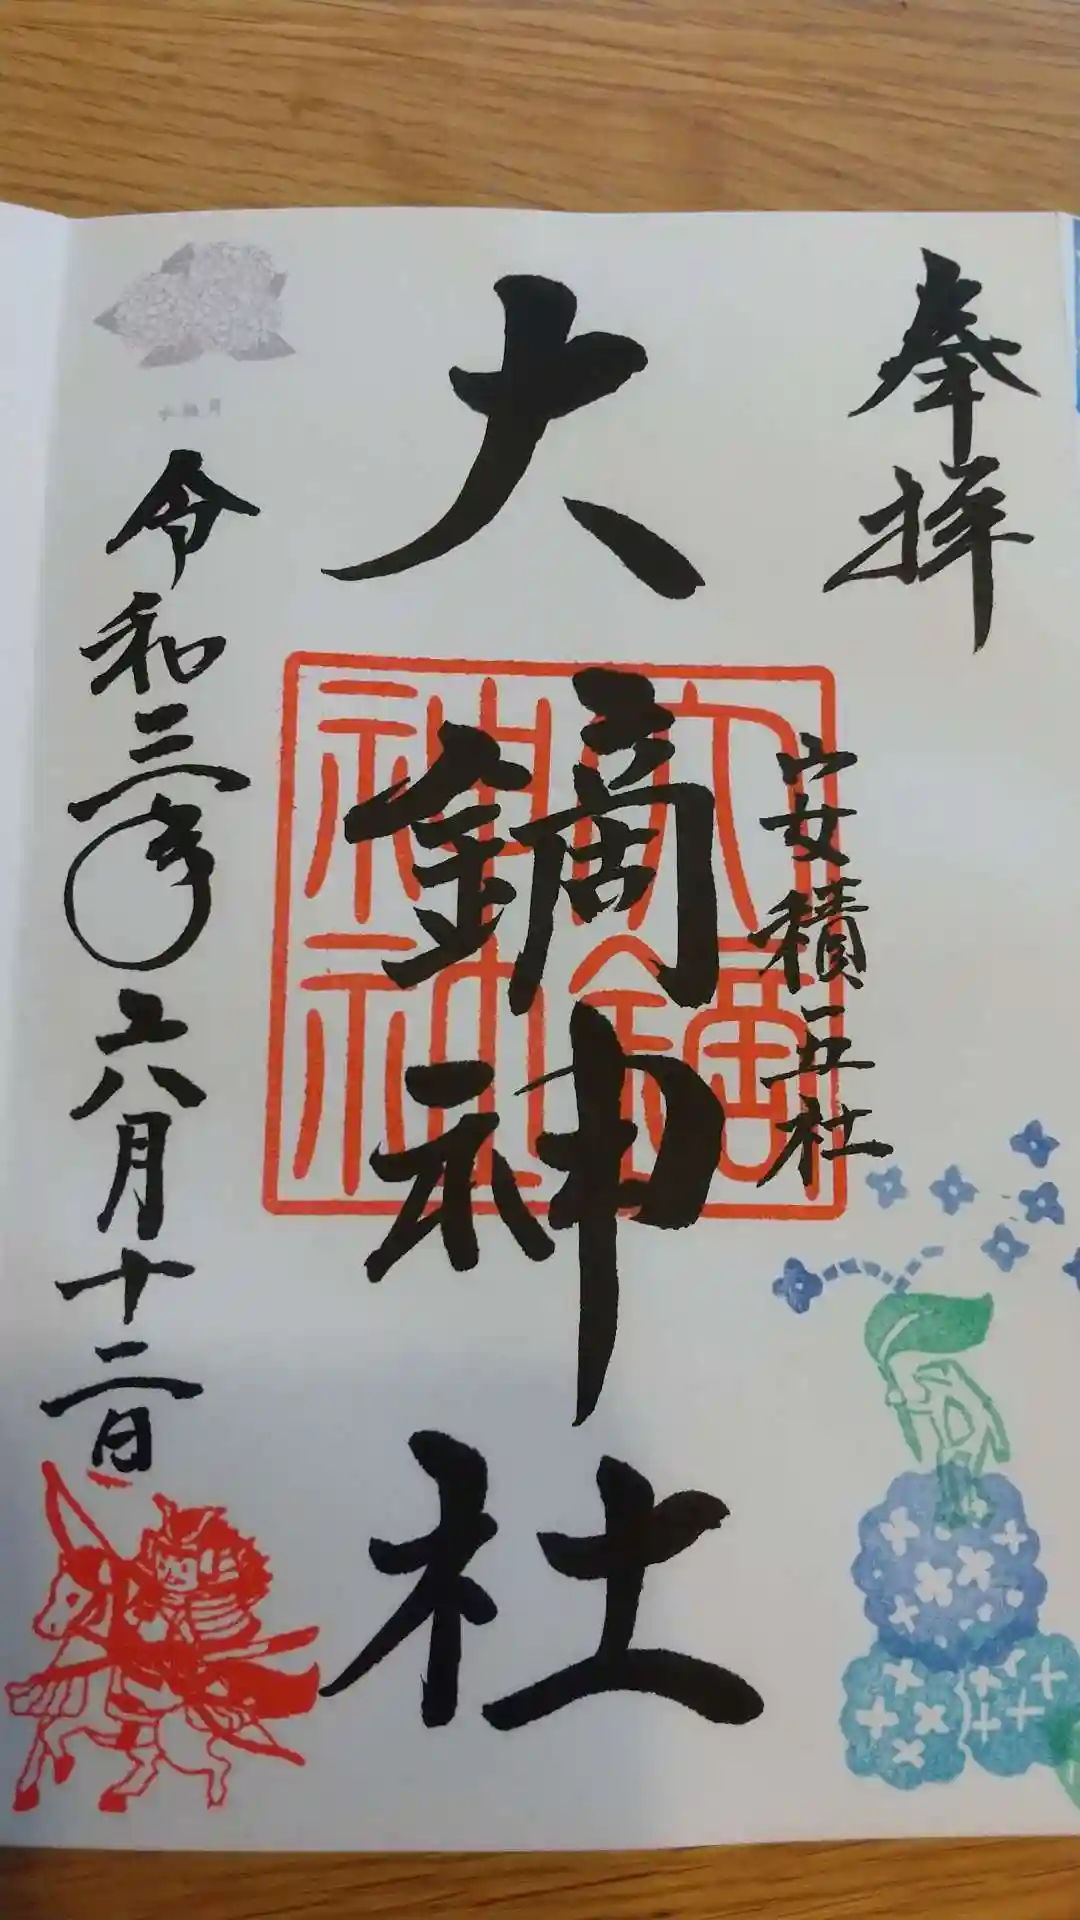 奉拝
安積三社
大鏑神社
大鏑神社
水無月
令和三年六月十二日